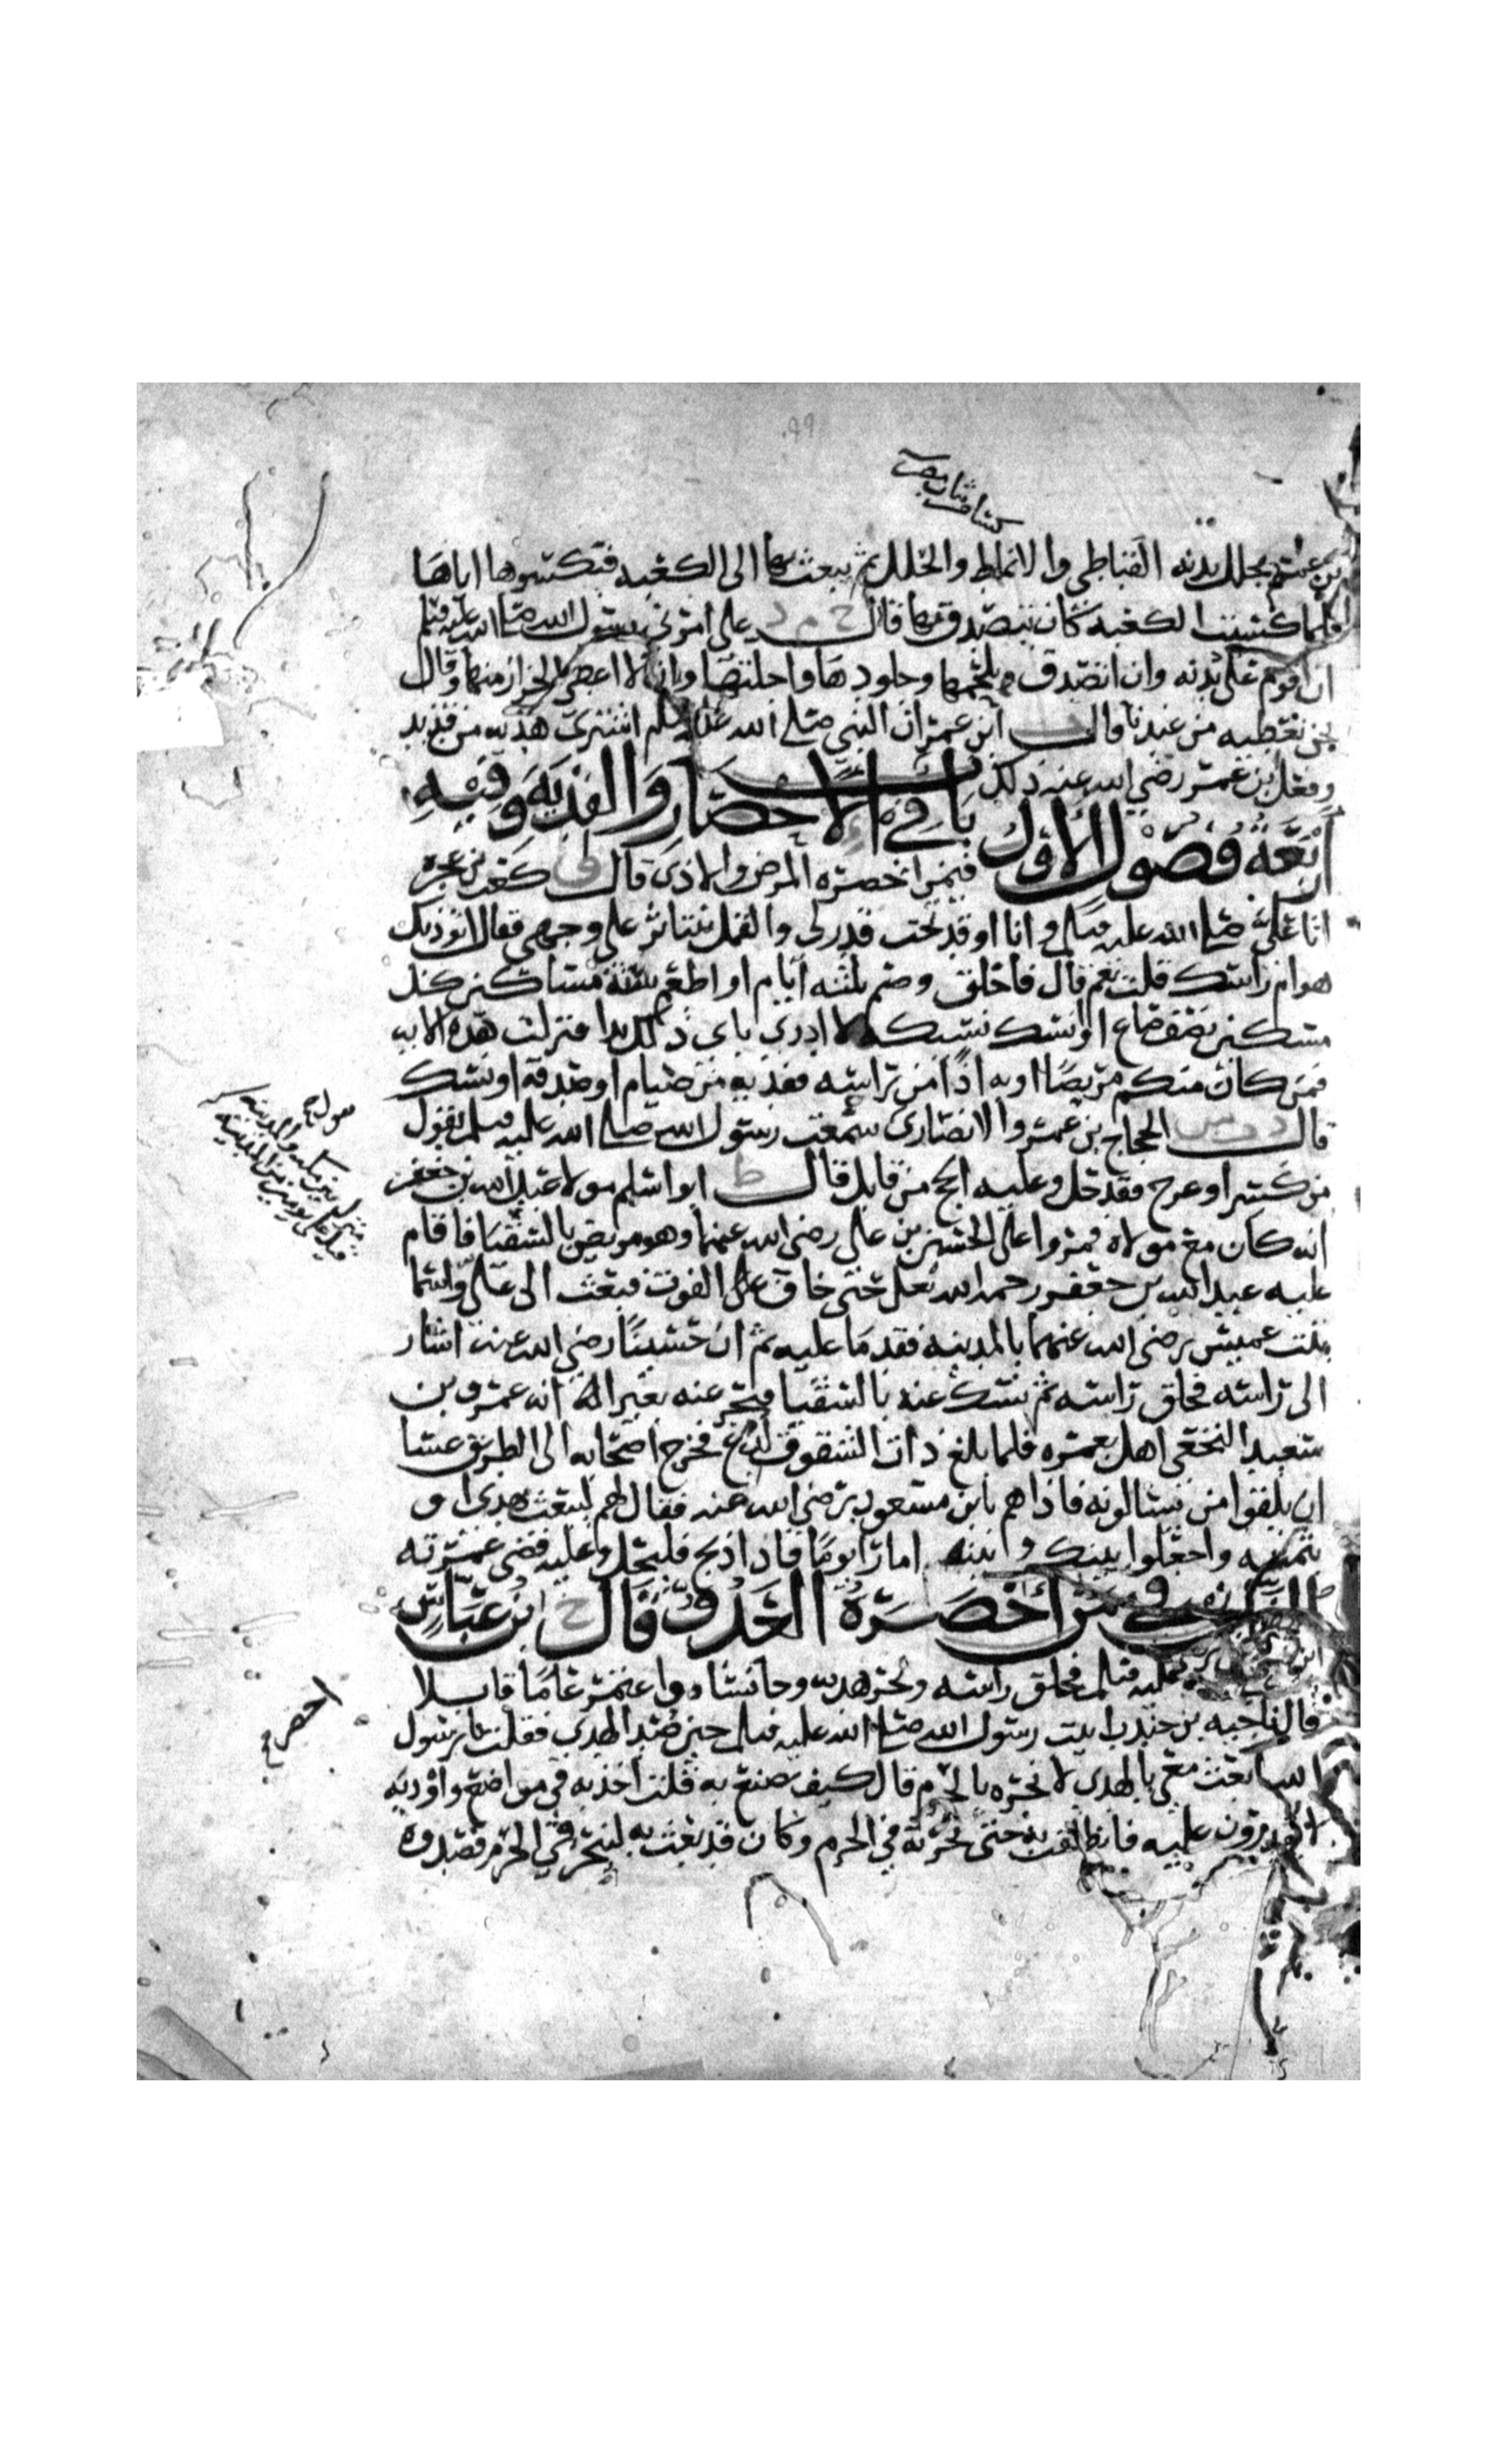 ٩٩
بن عمر يجلل بدنه القباطي والانماط والحلل ثم يبعث بها الى الكعبه فتكسوها اياها
فلما كسيت الكعبه كان يتصدق بها قال خ م د علي امرني رسول الله صلى الله عليه وسلم
ان اقوم على بدنه وان اتصدق بلحمها وجلودها واجلتها وان لا اعطي الجزار منها وقال
نحن نعطيه من عندنا قال ابن عمر ان النبي صلى الله عليه وسلم اشترى هديه من قديد
وفعل ابن عمر رضي الله عنه ذلك باب
في الاحصار والفديه وفيه
اربعة فصول الاول فيمن احصره المرض والاذى قال كعب بن عجره
اتى علي صلى الله عليه وسلم وانا اوقد تحت قدر لي والقمل يتناثر على وجهي فقال اتوذيك
هوام راسك قلت نعم قال فاحلق وصم ثلثه ايام او اطعم سته مساكين كل
مسكين نصف صاع او انسك نسيكه لا ادري باي ذلك بدا فنزلت هذه الايه
فمن كان منكم مريضا او به اذا من راسه ففديه من صيام او صدقه او نسك
قال د ت س الحجاج بن عمرو الانصاري سمعت رسول الله صلى الله عليه وسلم يقول
من كسر او عرج فقد حل وعليه الحج من قابل قال ط ابو اسلم مولا عبد الله بن جعفر
انه كان مع مولاه فمروا على الحسين بن علي رضي الله عنهما وهو مريض بالسقيا فاقام
عليه عبد الله بن جعفر رحمه الله تعلى حتى خاف على الفوت فبعث الى علي واسما
بنت عميس رضي الله عنهما بالمدينه فقدما عليه ثم ان حسينا رضي الله عنه اشار
الى راسه فحلق راسه ثم نسك عنه بالسقيا فنحر عنه بعيرا انه عمرو بن
سعيد النخعي اهل بعمره فلما بلغ ذات الشقوق لدغ فخرج اصحابه الى الطريق عسا
ان يلقوا من يسالونه فاذا هم بابن مسعود رضي الله عنه فقال لهم ليبعث بهدي او
بثمنه واجعلوا بينكم وبينه امارا يوما فاذا ذبح فليحل وعليه قضى عمرته
الثاني في من احصره العدو قال خ ابن عباس
عليه وسلم فحلق راسه ونحر هديه وجا نساه واعتمر عاما قابلا
قال ناجيه بن جندب اتيت رسول الله صلى الله عليه وسلم حين صد الهدي فقلت يا رسول
الله ابعث معي بالهدي لانحره بالحرم قال كيف تصنع به قلت اخذ به في مواضع واوديه
لا يقدرون عليه فانطلقت به حتى نحرته في الحرم وكان قد بعث به لينحر في الحرم فصدوه
احصر